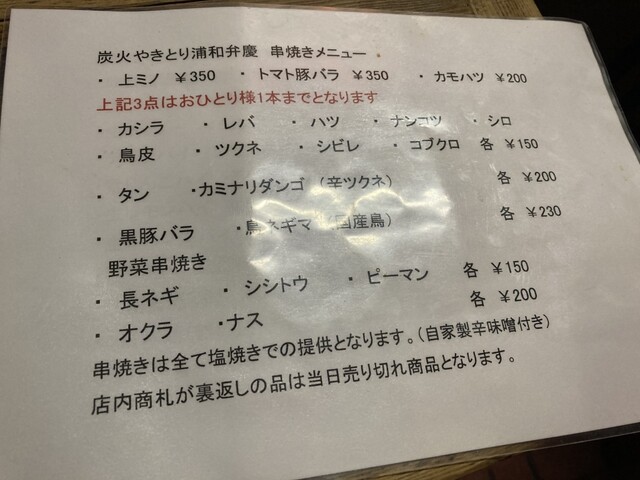 炭火やきとり浦和弁慶 串焼きメニュー
・ 上ミノ ￥350 ・ トマト豚バラ ￥350 ・ カモハツ ￥200
上記3点はおひとり様1本までとなります
・ カシラ ・ レバ ・ ハツ ・ ナンコツ ・ シロ
・ 鳥皮 ・ ツクネ ・ シビレ ・ コブクロ 各 ￥150
・ タン ・カミナリダンゴ（辛ツクネ） 各 ￥200
・ 黒豚バラ ・鳥ネギマ（国産鳥） 各 ￥230
野菜串焼き
・ 長ネギ ・ シシトウ ・ ピーマン 各 ￥150
・ オクラ ・ナス 各 ￥200
串焼きは全て塩焼きでの提供となります。（自家製辛味噌付き）
店内商札が裏返しの品は当日売り切れ商品となります。